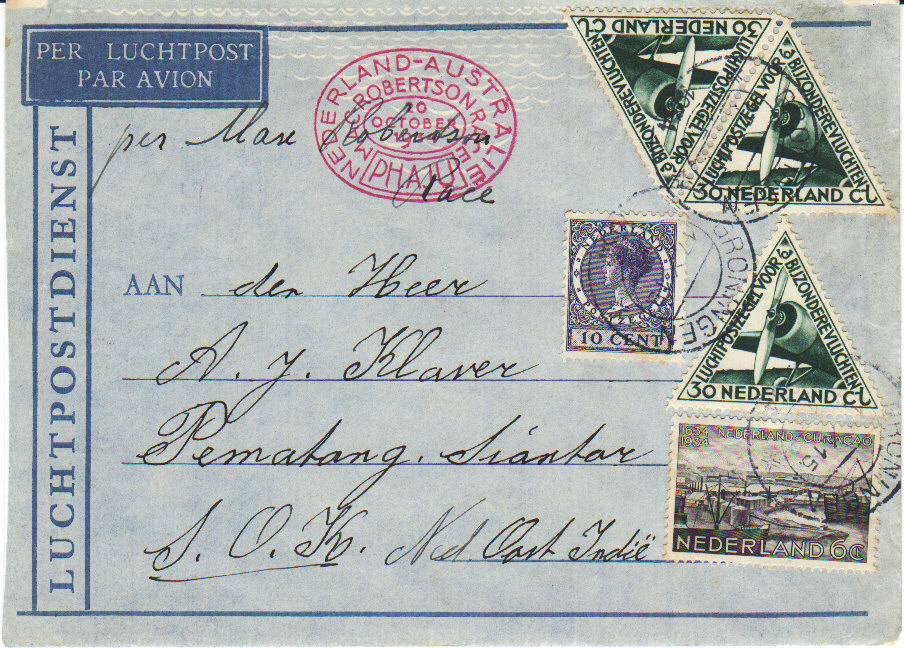 PER LUCHTPOST
PAR AVION
LUCHTPOSTDIENST
NEDERLAND-AUSTRALIE
MAC ROBERTSON RACE
OCTOBER
PHAJU
per Mac Robertson
Race
AAN den Heer
A. J. Klaver
Pematang. Siantar
S. O. K. Ned Oost Indië
30 NEDERLAND CT
LUCHTPOSTZEGEL VOOR
BIJZONDERE VLUCHTEN
30 NEDERLAND CT
LUCHTPOSTZEGEL VOOR
BIJZONDERE VLUCHTEN
NEDERLAND
POSTZEGEL
10 CENT
GRONINGEN
LUCHTPOSTZEGEL VOOR
BIJZONDERE VLUCHTEN
30 NEDERLAND CT
1634
1934
NEDERLAND-CURAÇAO
NEDERLAND 6 CT
15